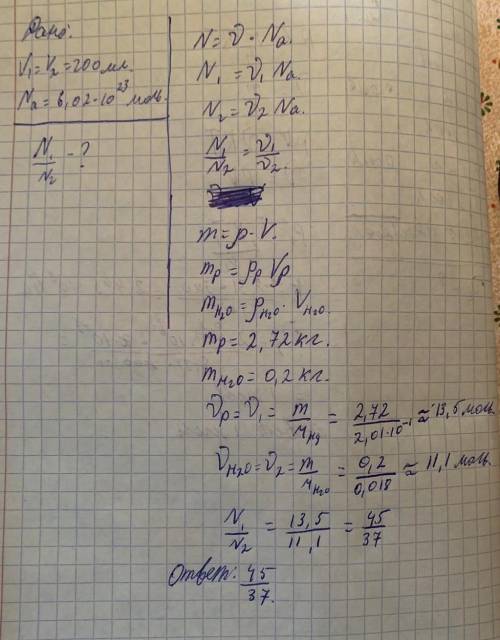 Дано:
V₁=V₂=200мл.
Nₐ=6,02·10²³ моль.
N₁/N₂ - ?
N=ν·Nₐ.
N₁=ν₁Nₐ.
N₂=ν₂Nₐ.
N₁/N₂=ν₁/ν₂.
m=ρ·V.
mₚ=ρₚVₚ
m_H₂O=ρ_H₂O·V_H₂O.
mₚ=2,72кг.
m_H₂O=0,2кг.
νₚ=ν₁=m/M_Hg=2,72/2,01·10⁻¹≈13,5моль
ν_H₂O=ν₂=m/M_H₂O=0,2/0,018≈11,1моль.
N₁/N₂=13,5/11,1=45/37
Ответ: 45/37.